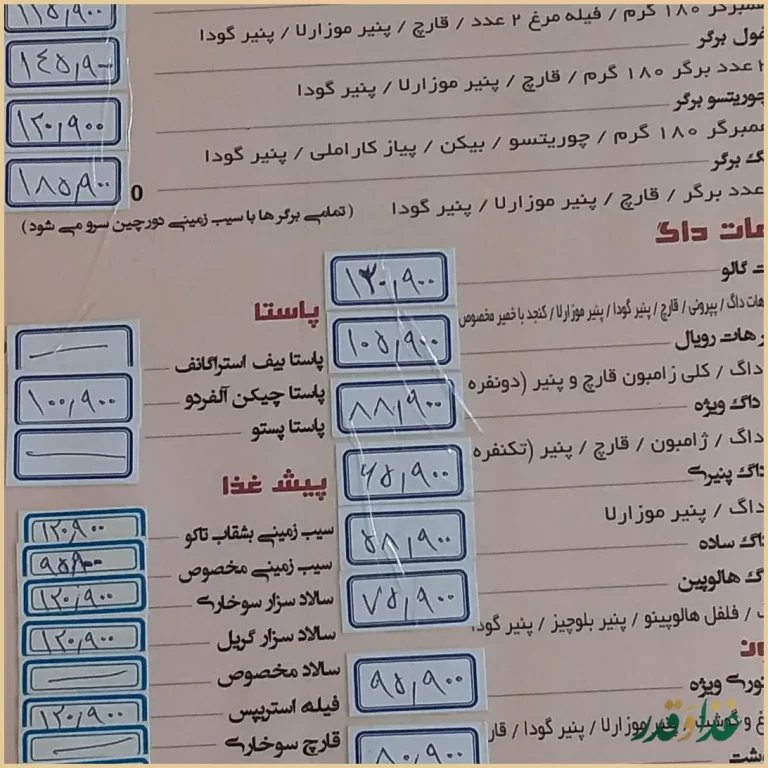 همبرگر ۱۸۰ گرم / فیله مرغ ۲ عدد / قارچ / پنیر موزارلا / پنیر گودا
۱۱۵,۹۰۰
غول برگر
۱۴۵,۹۰۰
۲ عدد برگر ۱۸۰ گرم / قارچ / پنیر موزارلا / پنیر گودا
چوریتسو برگر
۱۲۰,۹۰۰
همبرگر ۱۸۰ گرم / چوریتسو / بیکن / پیاز کاراملی / پنیر گودا
برگر
۱۸۵,۹۰۰
0
عدد برگر / قارچ / پنیر موزارلا / پنیر گودا
(تمامی برگر ها با سیب زمینی دورچین سرو می شود)
هات داگ
هات گالو
۱۳۰,۹۰۰
هات داگ / پپرونی / قارچ / پنیر گودا / پنیر موزارلا / کنجد با خمیر مخصوص
هات رویال
۱۰۵,۹۰۰
داگ / کلی ژامبون قارچ و پنیر (دونفره
داگ ویژه
۸۸,۹۰۰
داگ / ژامبون / قارچ / پنیر (تکنفره
داگ پنیری
۶۵,۹۰۰
داگ / پنیر موزارلا
داگ ساده
۵۸,۹۰۰
داگ هالوپین
۷۵,۹۰۰
/ فلفل هالوپینو / پنیر بلوچیز / پنیر گودا
ویژه
۹۵,۹۰۰
گوشت / پنیر موزارلا / پنیر گودا / قار
۸۰,۹۰۰
پاستا
پاستا بیف استراگانف
پاستا چیکن آلفردو
۱۰۰,۹۰۰
پاستا پستو
پیش غذا
سیب زمینی بشقاب تاکو
۱۲۰,۹۰۰
سیب زمینی مخصوص
۹۵,۹۰۰
سالاد سزار سوخاری
۱۲۰,۹۰۰
سالاد سزار گریل
۱۲۰,۹۰۰
سالاد مخصوص
فیله استریپس
۱۲۰,۹۰۰
قارچ سوخاری
غذا و قدر